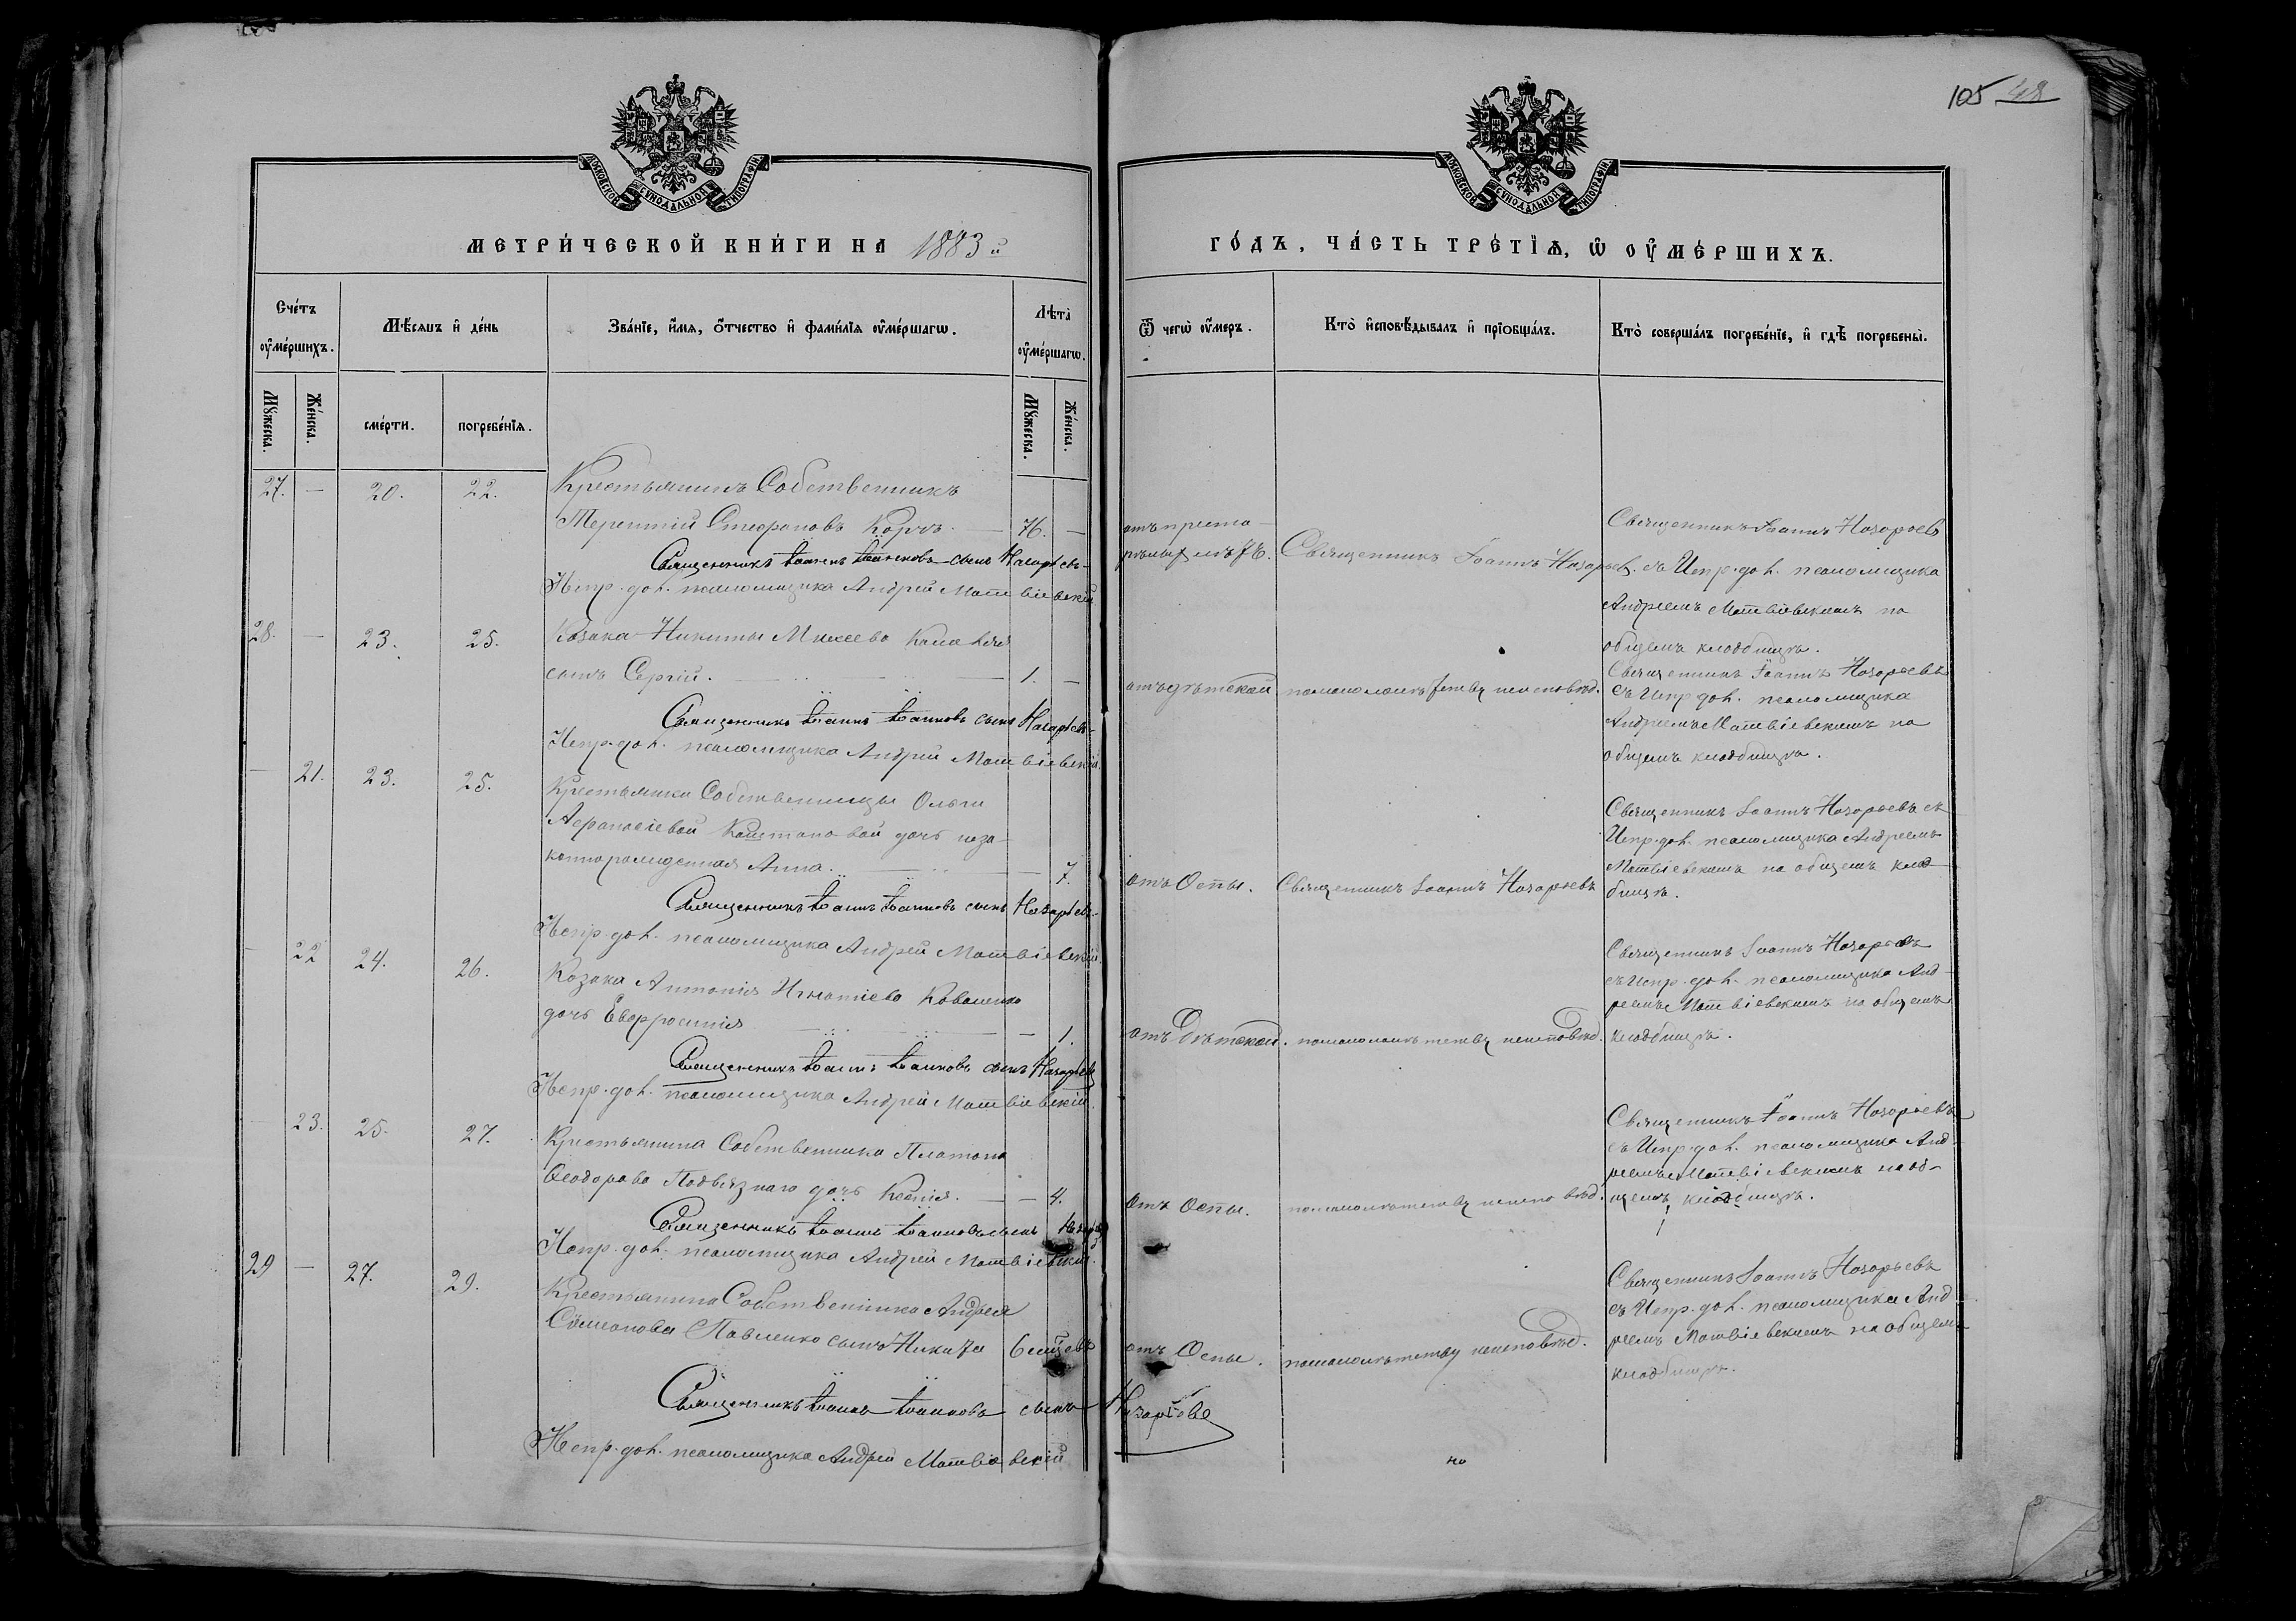 105 48
МОСКОВСКОЙ СѴНОДАЛЬНОЙ ТИПОГРАФІИ
МОСКОВСКОЙ СѴНОДАЛЬНОЙ ТИПОГРАФІИ
МЕТРИ́ЧЕСКОЙ КНИ́ГИ НА 1883 й
ГО́ДЪ, ЧА́СТЬ ТРЕ́ТІѦ, Ѡ ОУ҆МЕ́РШИХЪ.
Сче́тъ оу҆ме́ршихъ.
Мѣ́сѧцъ и҆ де́нь
Зва́нїе, и҆́мѧ, ѻ҆́тчество и҆ фами́лїѧ оу҆ме́ршагѡ.
Лѣ́та оу҆ме́ршагѡ.
Ѿ чегѡ̀ оу҆́меръ.
Кто̀ и҆сповѣ́дывалъ и҆ прїобща́лъ.
Кто̀ соверша́лъ погребе́нїе, и҆ гдѣ̀ погребены̀.
Мꙋ́жеска.
Же́нска.
сме́рти.
погребе́нїѧ.
Мꙋ́жеска.
Же́нска.
27. — 20. 22. Крестьянинъ Собственникъ
Терентій Стефановъ Корчъ. — 76. —
Священникъ Іоаннъ Іоанновъ сынъ Назарьевъ
Испр. дол. псаломщика Андрей Матвіевскій
Священникъ Іоаннъ Назарьев.
Священникъ Іоаннъ Назарьевъ
съ Испр. дол. псаломщика
Андреемъ Матвіевскимъ на
общемъ кладбищѣ.
28. — 23. 25. Козака Никиты Михеева
сынъ Сергій. — 1. —
Священникъ Іоаннъ Іоанновъ сынъ Назарьевъ
Испр. дол. псаломщика Андрей Матвіевскій.
отъ дѣтской помалолѣтству неисповѣд.
Священникъ Іоаннъ Назарьевъ
съ Испр. дол. псаломщика
Андреемъ Матвіевскимъ на
общемъ кладбищѣ.
— 21. 23. 25. Крестьянки Собственницы Ольги
Афанасіевой Каштановой дочь неза-
коннорожденная Анна. — 7.
Священникъ Іоаннъ Іоанновъ сынъ Назарьевъ
Испр. дол. псаломщика Андрей Матвіевскій.
отъ Оспы. Священникъ Іоаннъ Назарьевъ
Священникъ Іоаннъ Назарьевъ съ
Испр. дол. псаломщика Андреемъ
Матвіевскимъ на общемъ клад-
бищѣ.
— 22 24. 26. Козака Антонія Игнатіева Коваленко
дочь Евфросинія — 1.
Священникъ Іоаннъ Іоанновъ сынъ Назарьевъ
Испр. дол. псаломщика Андрей Матвіевскій.
отъ дѣтской. помалолѣтству неисповѣд.
Священникъ Іоаннъ Назарьевъ
съ Испр. дол. псаломщика Анд-
реемъ Матвіевскимъ на общемъ
кладбищѣ.
— 23. 25. 27. Крестьянина Собственника Платона
Ѳеодорова Подвязнаго дочь Ксенія. — — 4.
Священникъ Іоаннъ Іоанновъ сынъ
Испр. дол. псаломщика Андрей Матвіевскій.
отъ Оспы. помалолѣтству неисповѣд.
Священникъ Іоаннъ Назарьевъ
съ Испр. дол. псаломщика Анд-
реемъ Матвіевскимъ на об-
щемъ кладбищѣ.
29 — 27. 29. Крестьянина Собственника Андрея
Симеонова Павленко сынъ Никита 6 мцевъ
Священникъ Іоаннъ Іоанновъ сынъ Назарьевъ
Испр. дол. псаломщика Андрей Матвіевскій
отъ Оспы. помалолѣтству неисповѣд.
Священникъ Іоаннъ Назарьевъ
съ Испр. дол. псаломщика Анд-
реемъ Матвіевскимъ на общемъ
кладбищѣ.